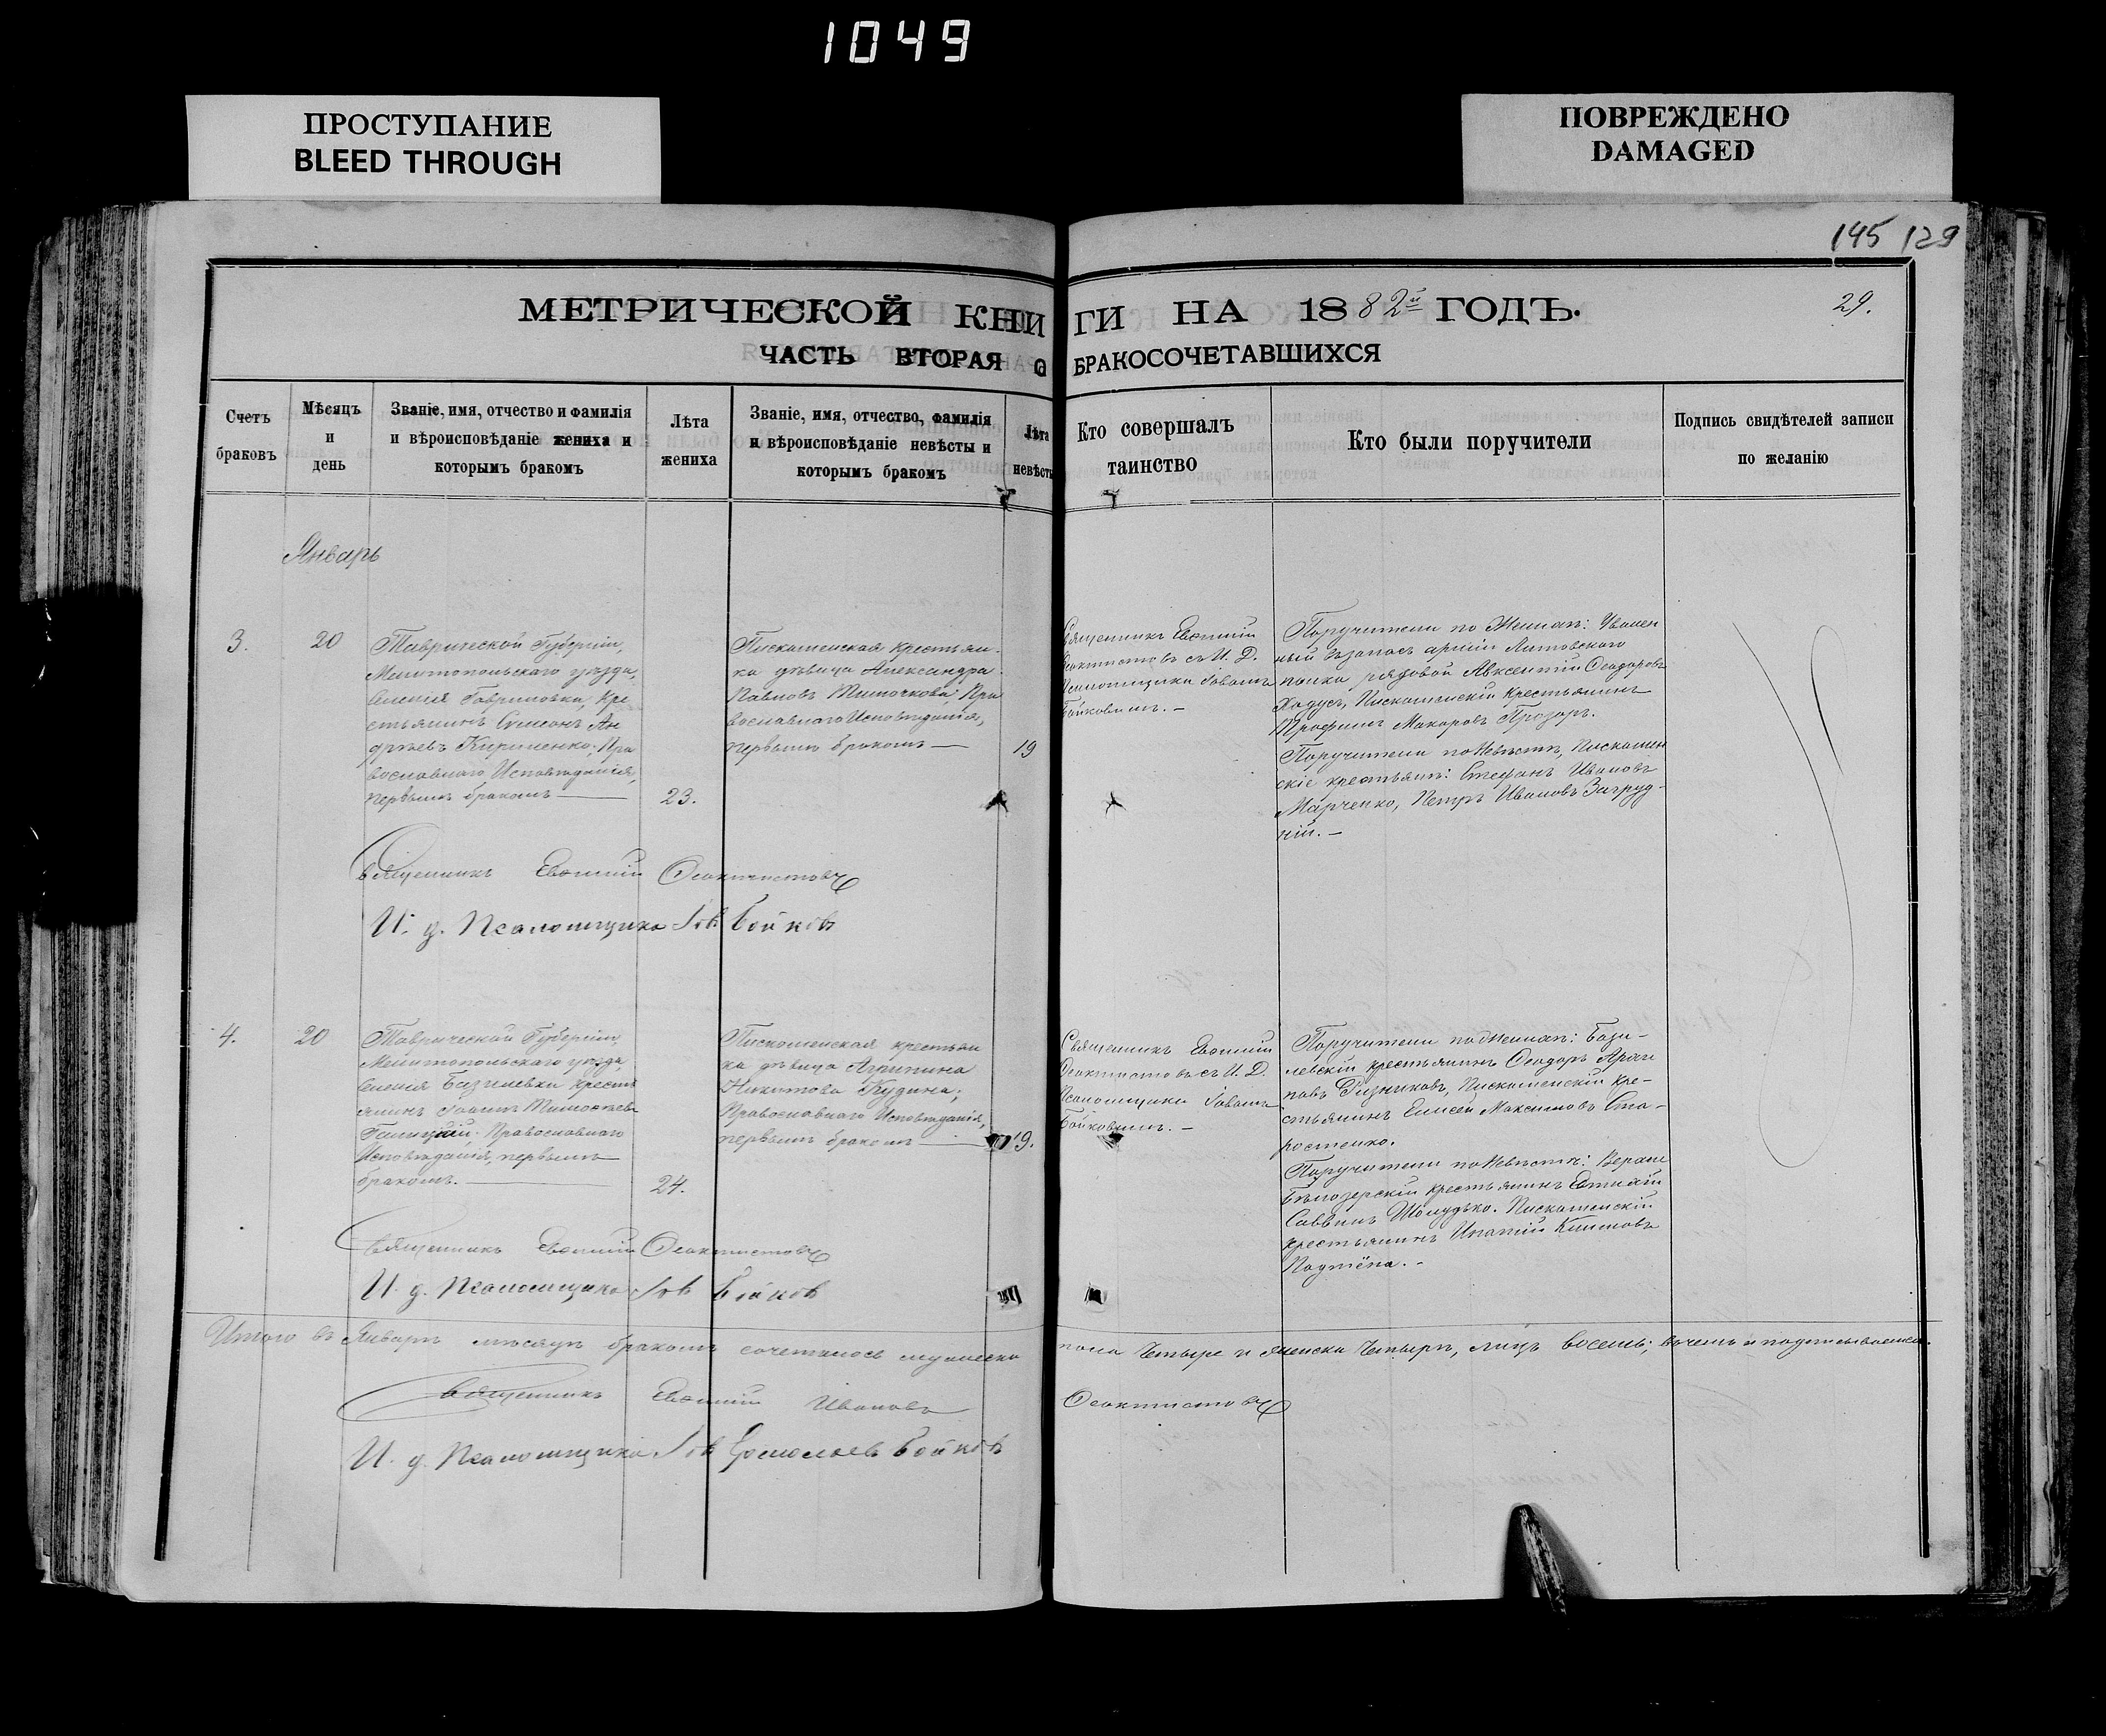 1049
ПРОСТУПАНИЕ
BLEED THROUGH
ПОВРЕЖДЕНО
DAMAGED
145 129
МЕТРИЧЕСКОЙ КНИГИ НА 1882й ГОДЪ.
29.
ЧАСТЬ ВТОРАЯ О БРАКОСОЧЕТАВШИХСЯ
Счетъ
браковъ
Мѣсяцъ
и
день
Званіе, имя, отчество и фамилія
и вѣроисповѣданіе жениха и
которымъ бракомъ
Лѣта
жениха
Званіе, имя, отчество, фамилія
и вѣроисповѣданіе невѣсты и
которымъ бракомъ
Лѣта
невѣсты
Кто совершалъ
таинство
Кто были поручители
Подпись свидѣтелей записи
по желанію
Январь
3.
20
Таврической Губерніи,
Мелитопольскаго уѣзда,
селенія Гавриловки, Кре
стьянинъ Симеонъ Ан
дреевъ Кириленко, Пра
вославнаго Исповѣданія,
первымъ бракомъ —
23.
Пискошенская крестьян
ка дѣвица Александра
Павловъ Тимочкова, Пра
вославнаго Исповѣданія,
первымъ бракомъ —
19
Священникъ Евѳимій
Ѳеоктистовъ съ И. Д.
Псаломщика Іовомъ
Бойковымъ. —
Поручители по Женихѣ: Уволен
ный въ запасъ арміи Литовскаго
полка рядовой Авксентій Ѳеодоровъ
Ходусъ, Пискошенскій крестьянинъ
Трофимъ Макаровъ Прозоръ.
Поручители по Невѣстѣ, Пискошен
скіе крестьяне: Стефанъ Ивановъ
Марченко, Петръ Ивановъ Загруд-
ній. —
Священникъ Евѳимій Ѳеоктистовъ
И. д. Псаломщика Іовъ Бойковъ
4.
20
Таврической Губерніи,
Мелитопольскаго уѣзда,
селенія Базилевки кресть
янинъ Іоаннъ Тимоѳеевъ
Галицкій, Православнаго
Исповѣданія, первымъ
бракомъ. —
24.
Пискошенская крестьян
ка дѣвица Агрипина
Никитова Кудина;
Православнаго Исповѣданія,
первымъ бракомъ —
19.
Священникъ Евѳимій
Ѳеоктистовъ съ И. Д.
Псаломщика Іовомъ
Бойковымъ. —
Поручители по Женихѣ: Бази-
левскій крестьянинъ Ѳеодоръ
Пискошенскій кре-
стьянинъ Елисей Максимовъ Ста-
ростенко.
Поручители по Невѣстѣ: Верхне
Бѣлозерскій крестьянинъ
Саввинъ Шолудько. Пискошенскій
крестьянинъ Ипатій Климовъ
Священникъ Евѳимій Ѳеоктистовъ
И. д. Псаломщика Іовъ Бойковъ
Итого въ Январѣ мѣсяцѣ бракомъ сочеталось мужеска пола Четыре и женска Четыре, лицъ восемь; въ чемъ и подписываемся.
Священникъ Евѳимій Ивановъ Ѳеоктистовъ
И. д. Псаломщика Іовъ Ермолаевъ Бойковъ